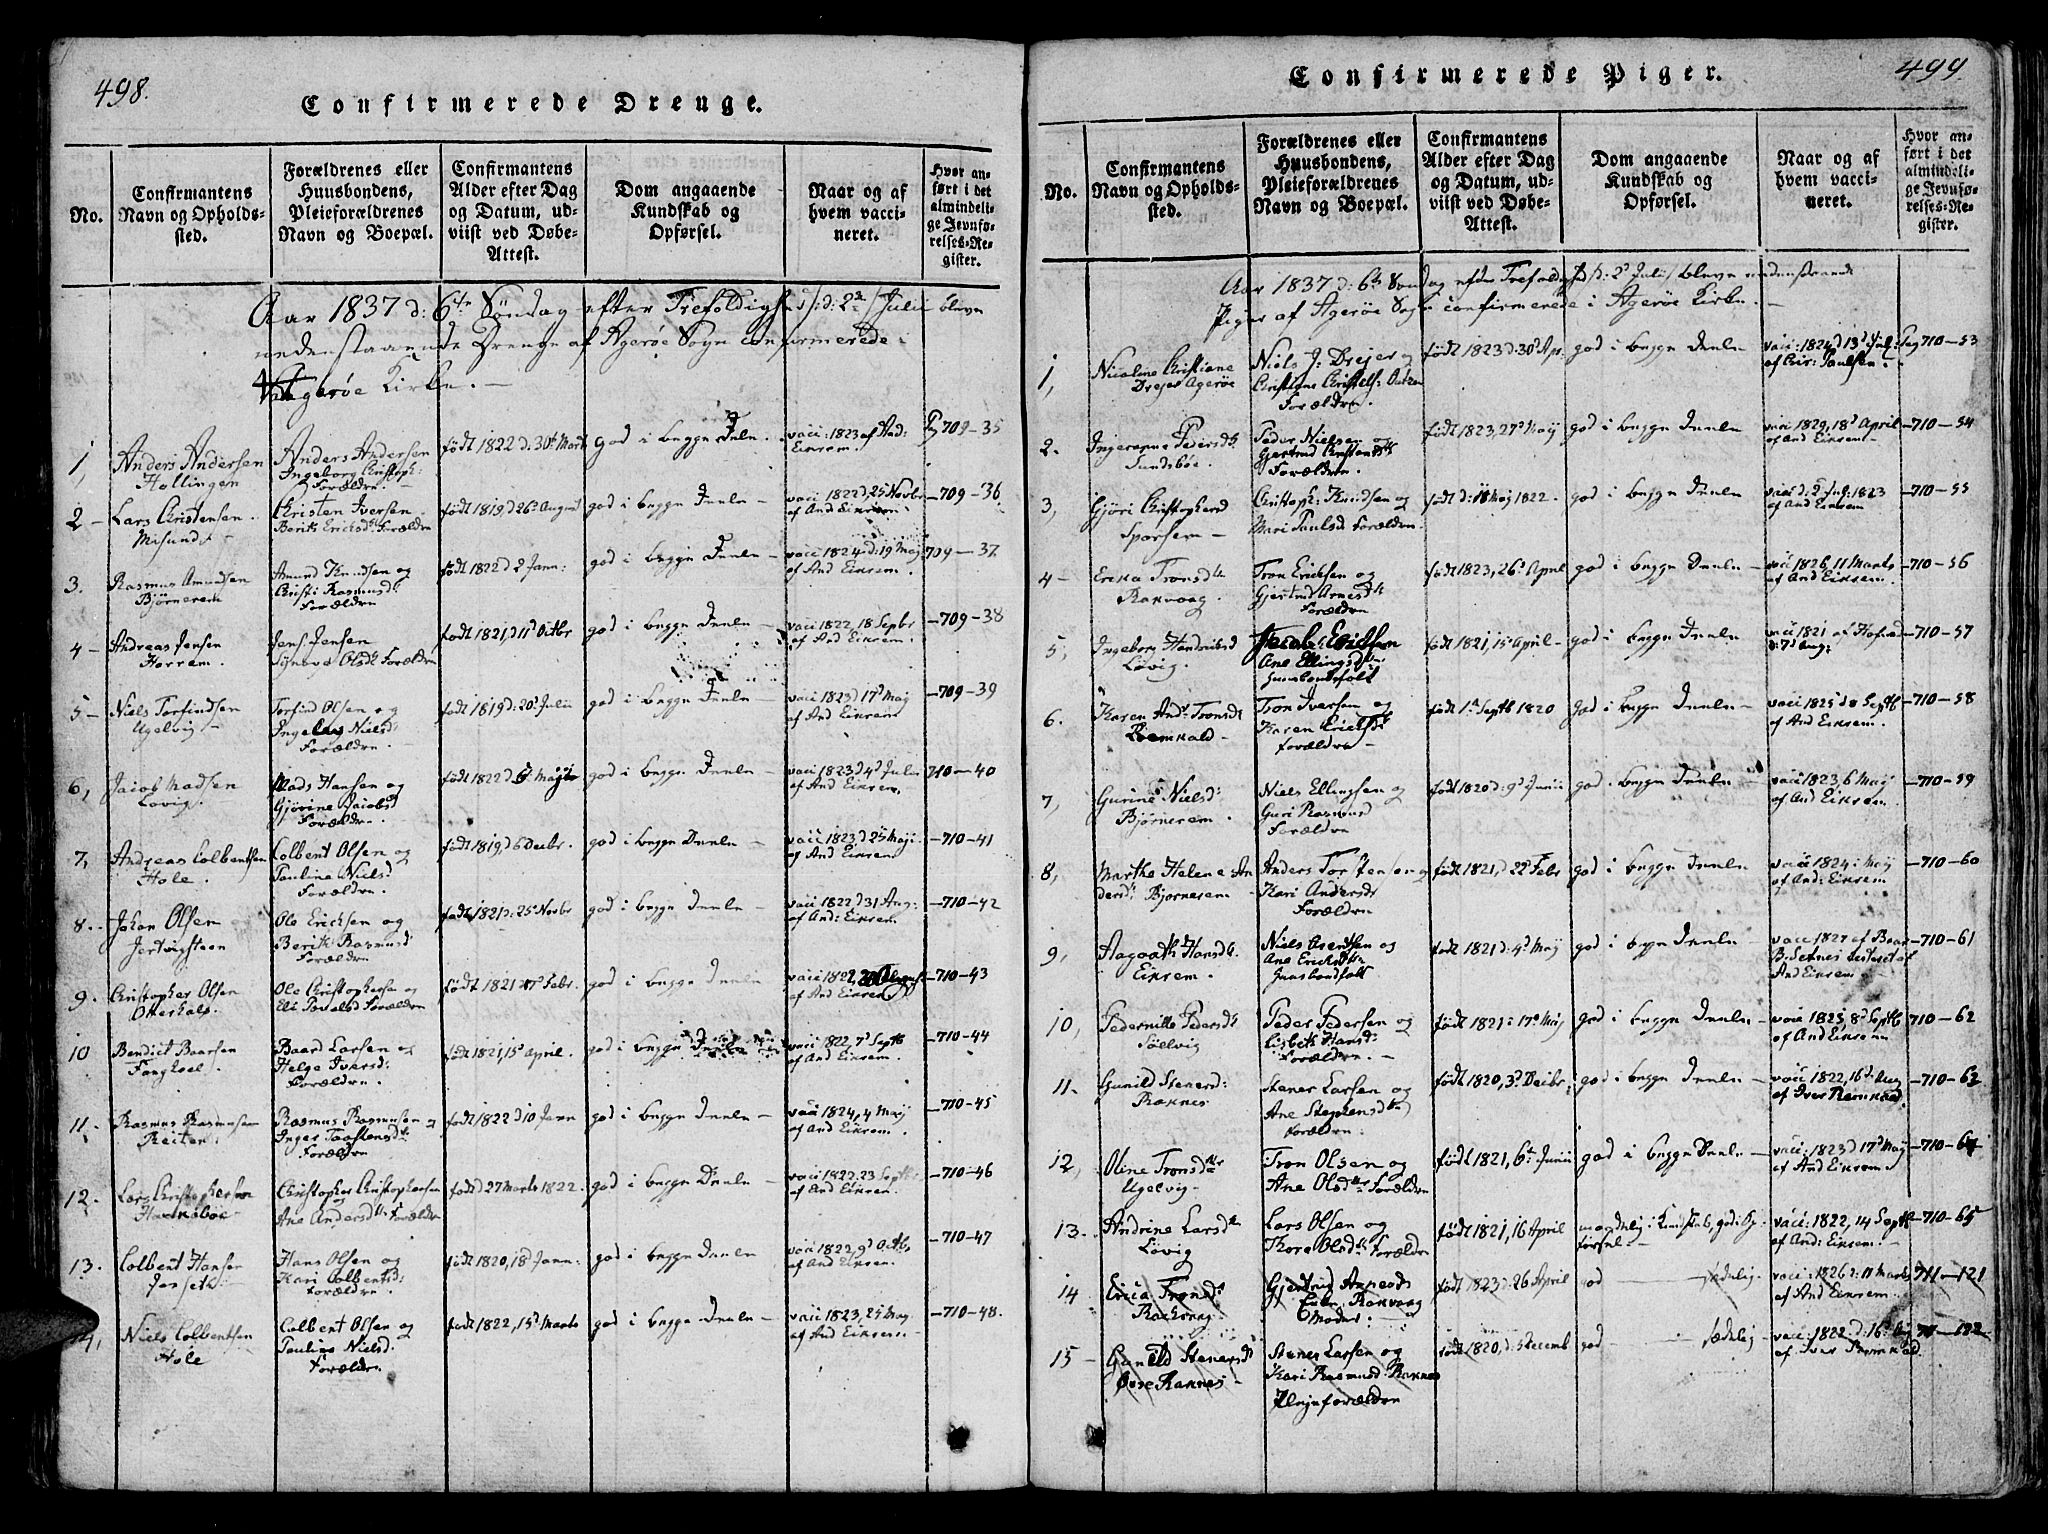 498.
Confirmerede Drenge.
No.
Confirmantens Navn og Opholdssted.
Forældrenes eller Huusbondens, Pleieforældrenes Navn og Boepæl.
Confirmantens Alder efter Dag og Datum, udviist ved Døbe-Attest.
Dom angaaende Kundskab og Opførsel.
Naar og af hvem vaccineret.
Hvor anført i det almindelige Jevnførelses-Register.
Aar 1837 d: 6te Søndag efter Trefoldighed /: d: 2den Julii bleve
nedenstaaende Drenge af Agerøe Sogn confirmerede i
Agerøe Kirke. —
1, Anders Andersen Hollingen
Anders Andersen Ingeborg Christoph: Forældre. —
født 1822 d. 30t Marts
god i begge Deele.
vacc: 1823 af And: Eikrem.
Pag 709-35
2 - Lars Christensen Misund
Christen Iversen Berith Ericksd Forældre
født 1819 d 26 August
god i begge Deele —
vacc 1822 d, 25 Novbr af And Eikrem
-709-36
3. Rasmus Amundsen Bjørnerem
Amund Knudsen og Christi Rasmusd Forældre
født 1822 d 2 Jann:
god i begge Deele —
vacc 1824 d: 19 Maj af And Eikrem.
709-37
4 - Andreas Jensen Horrem.
Jens Jensen Synneve Olsd Forældre
født 1821, d 11 Octbr
god i begge Deele —
vacc 1822, 18 Sepbr af And Eikrem.
-709-38
5 - Niels Torfindsen Ugelvig —
Torfind Olsen og Ingeborg Nielsd Forældre. —
født 1819 d: 20 Julii
god i begge Deele —
vacc 1823 d 17 Maj af And Eikrem.
-709-39
6, Jacob Madsen Lovig.
Mads Hansen og Gjørine Jacobsd Forældre.
født 1822 d 6 Maji
god i begge Deele —
vacc 1823 d 4 Julii af And Eikrem.
710-40
7, Andreas Colbentsen Hole.
Colbent Olsen og Pauline Nielsd Forældre.
født 1819, d 6 Decbr.
god i begge Deele —
vacc 1823, d 25 Maji af And Eikrem.
-710-41
8. Johan Olsen Jertvigsteen
Ole Ericksen og Berith Rasmusd Forældre
født 1821 d: 25 Novbr
god i begge Deele —
vacc 1822 d 31 Aug: af And: Eikrem
-710-42
9. Christopher Olsen Otterhals.
Ole Christophersen og Eli Povelsd Forældre
født 1821 17 Febr.
god i begge Deele
af And Eikrem
-710-43
10 Bendict Baarsen
Baard Larsen og Helge Iversd: Forældre.
født 1821, 15 April.
god i begge Deele
vacc 1822, 7 Septb af And Eikrem.
-710-44
11. Rasmus Rasmussen Reiten.
Rasmus Rasmussen og Inger Toostensd Forældre
født 1822 d 10 Jann
god i begge Deele —
vacc 1824, 4 Maij af And Eikrem.
-710-45
12. Lars Christophersen Harrøboe
Christopher Christophersen og Ane Andersd Forældre
født 27 Marts 1822.
god i begge Deele —
vacc 1822. 23 Septb: af And Eikrem.
-710-46
13. Colbent Hansen
Hans Olsen og Kari Colbentsd: Forældre.
født 1820, 18 Jann:
god i begge Deele
vacc 1822, 9 Octb af And: Eikrem.
-710-47
14, Niels Colbentsen Hole
Colbent Olsen og Pauline Nielsd. Forældre
født 1822, 15 Marts
god i begge Deele —
vacc 1823, 25 Maj af And Eikrem —
-710-48.
499.
Confirmerede Piger.
No.
Confirmantens Navn og Opholdssted.
Forældrenes eller Huusbondens, Pleieforældrenes Navn og Boepæl.
Confirmantens Alder efter Dag og Datum, udviist ved Døbe-Attest.
Dom angaaende Kundskab og Opførsel.
Naar og af hvem vaccineret.
Hvor anført i det almindelige Jevnførelses-Register.
Aar 1837 d: 6te Søndag efter Trefoldighed /: d: 2 Julii / bleve nedenstaaende
Piger af Agerøe Sogn confirmerede i Agerøe Kirke. —
1, Nicoline Christiane Drejer Agerøe
Niels J: Drejer og Forældre.
født 1823 d: 30 Apr.
god i begge Deele
vacc: 1824 d 13 Jul: af Chir: Paulsen.
Pag 710-53
2. Ingeranne Pedersd Sundsbøe.
Peder Nielsen og Gjertrud Christensd Forældre.
født 1823, 27 Maij
god i begge Deele —
vacc 1829, 18 April af And Eikrem —
-710-54
3, Gjøri Christophersd Sporsem —
Christoph: Knudsen og Mari Paulsd Forældre
født d: 18 Maj 1822.
god i begge Deele
vacc: d: 2 Jul: 1823 af And Eikrem
-710-55
4 - Erika Tronsd Rakvaag.
Tron Ericksen og Gjertrud Arnesd Forældre
født 1823, 26 April
god i begge Deele —
vacc 1826, 11 Marts af And Eikrem.
-710-56
5, Ingeborg Hendriksd Lovig.
Jacob Ericksen Ane Ellingsd Huusbondsfolk
født 1821, 15 April —
god i begge Deele
vacc 1821 af Hofstad d: 7 Aug:
-710-57
6. Karen And: Tronsd Reemkald —
Tron Iversen og Karen Ericksd Forældre —
født 1 Septb 1820
god i begge Deele —
vacc 1825 d 8 Septb af And Eikrem.
-710-58
7, Gurine Nielsd: Bjørnerem.
Niels Ellingsen og Guri Rasmusd Forældre
født 1820 d: 9 Junii
god i begge Deele —
vacc 1823, 6 Maij af And Eikrem.
-710-59
8, Marthe Helene Andersd: Bjørnerem —
Anders Torstensen og Kari Andersd Forældre
født 1821, d 22 Febr
god i begge Deele
vacc 1824: Maij af And: Eikrem
-710-60
9, Aagaath Hansd. Eikrem.
Niels Arentsen og Ane Ericksd Huusbondfolk
født 1821 d: 4 Maij
god i begge Deele —
And Eikrem —
-710-61
10, Pedernille Pedersd Søllvig
Peder Pedersen og Lisbeth Hansd: Forældre. —
født 1821: 17 Maij
god i begge Deele —
vacc 1825, 8 Septb af And Eikrem
710-62
11. Gunild Stenersd: Raknes
Stener Larsen og Ane Stephensd Forældre.
født 1820, 3 Decbr:
god i begge Deele —
vacc 1822, 16 Aug af Iver Remkald
-710-63
12, Oline Tronsd Ugelvig.
Tron Olsen og Ane Olsd Forældre
født 1821, 6 Junii
god i begge Deele —
vacc: 1823 d 17 Maij af And Eikrem.
-710-64
13. Andrine Larsd Lovig
Lars Olsen og Kore Olsd Forældre
født 1821, 16 April
maadelig i Kundskab, god i Opførsel. —
vacc: 1822, 14 Septb af And: Eikrem. —
-710-65
14 Erica Tronsd Rakvaag.
Gjertrud Arnesd Enke Rakvaag Moder —
født 1823 d: 26 April
god — sædelig.
vacc: 1826 d: 11 Marts af And Eikrem.
711-121
15 - Gunild Stenersd Øvre Raknes —
Stener Larsen og Kari Rasmusd Raknes Plejeforældre
født 1820, d: 3 Decemb
god — sædelig
vacc: 1822. d: 16 Aug af Iver Remkald.
71-122